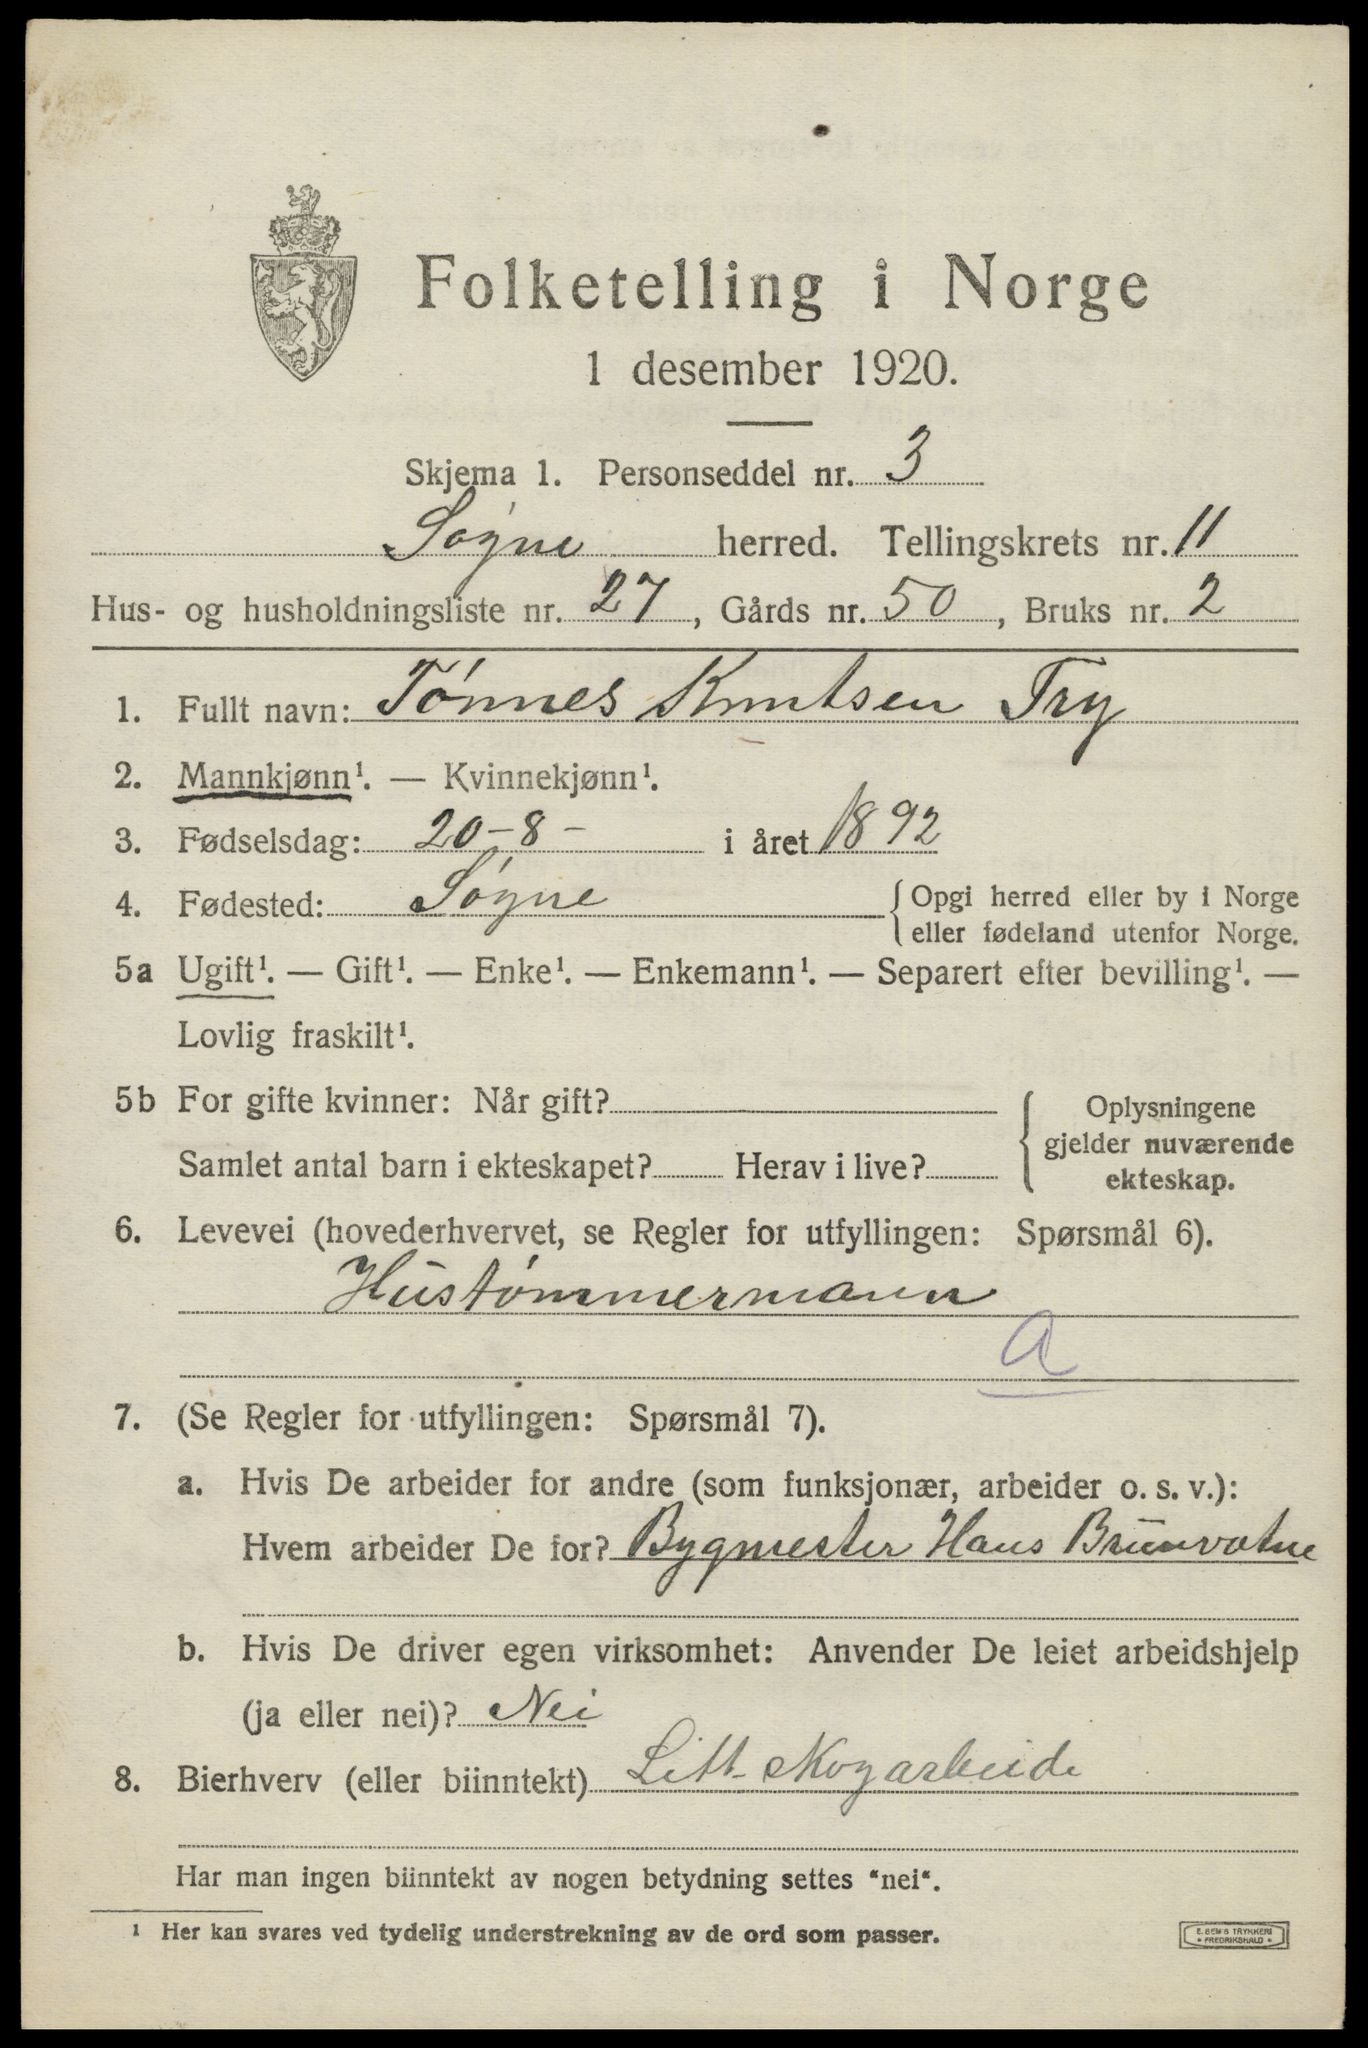 Folketelling i Norge
1 desember 1920.
Skjema 1. Personseddel nr. 3
Søgne herred. Tellingskrets nr. 11
Hus- og husholdningsliste nr. 27, Gårds nr. 50, Bruks nr. 2
1. Fullt navn: Tønnes Knutsen Try
2. Mannkjønn¹. — Kvinnekjønn¹.
3. Fødselsdag: 20-8- i året 1892
4. Fødested: Søgne { Opgi herred eller by i Norge
eller fødeland utenfor Norge.
5a Ugift¹. — Gift¹. — Enke¹. — Enkemann¹. — Separert efter bevilling¹. —
Lovlig fraskilt¹.
5b For gifte kvinner: Når gift? { Oplysningene
gjelder nuværende
Samlet antal barn i ekteskapet? Herav i live?
ekteskap.
6. Levevei (hovederhvervet, se Regler for utfyllingen: Spørsmål 6).
Hustømmermann
a
7. (Se Regler for utfyllingen: Spørsmål 7).
a. Hvis De arbeider for andre (som funksjonær, arbeider o. s. v.):
Hvem arbeider De for? Bygmester Hans Brunvatne
b. Hvis De driver egen virksomhet: Anvender De leiet arbeidshjelp
(ja eller nei)? Nei
8. Bierhverv (eller biinntekt) Litt skogarbeide
Har man ingen biinntekt av nogen betydning settes "nei".
¹ Her kan svares ved tydelig understrekning av de ord som passer.
E. SEM'S TRYKKERI
FREDRIKSHALD